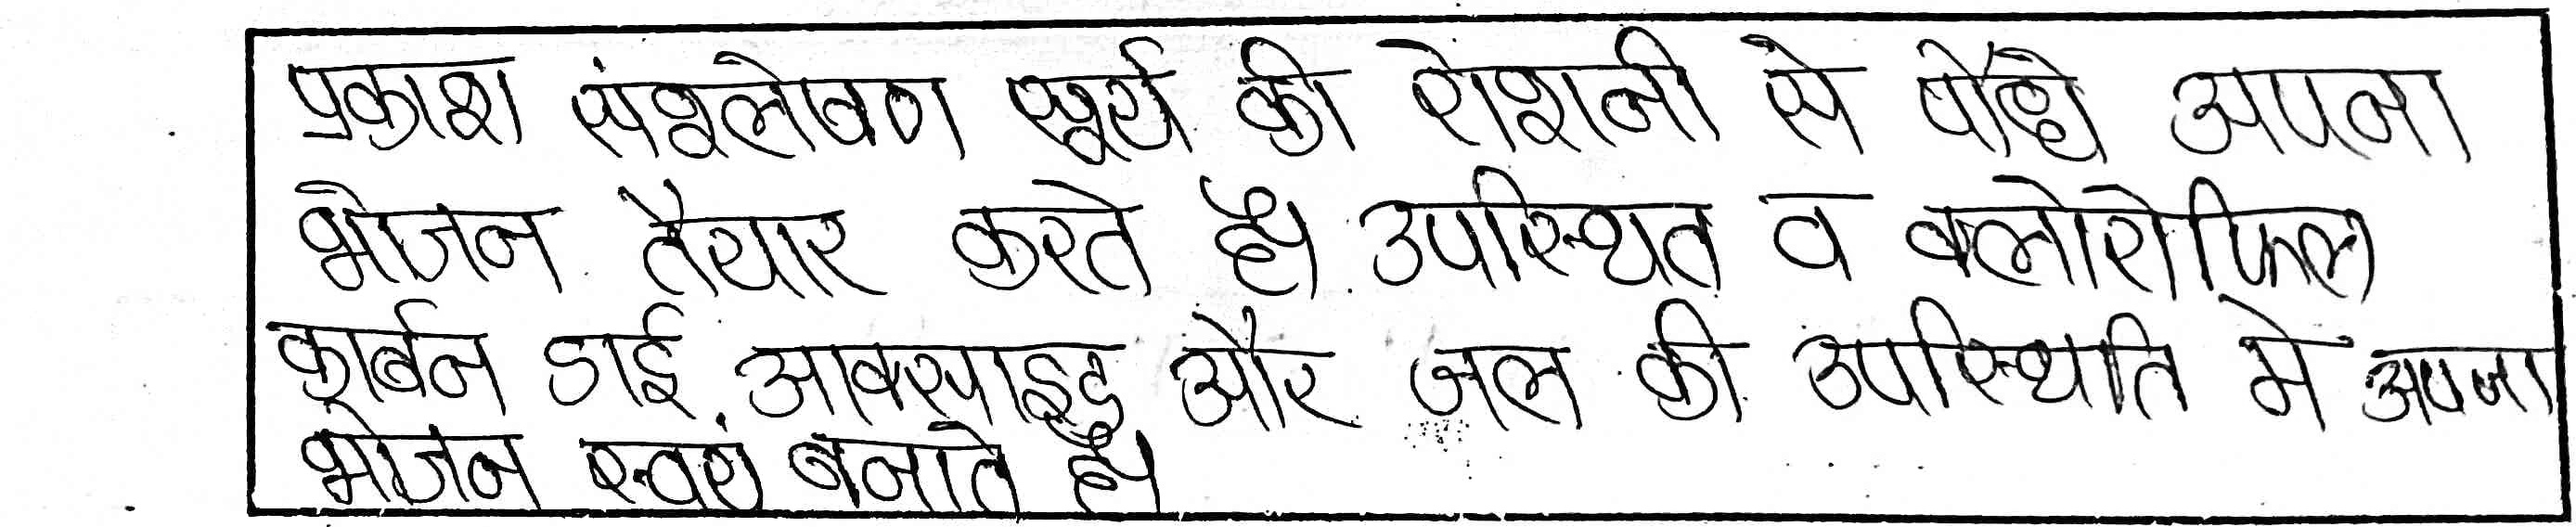 प्रकाश संश्लेषण सूर्य की रोशनी से पौधे अपना
भोजन तैयार करते है। उपस्थित व क्लोरोफिल
कार्बन डाई आक्साइड और जल की उपस्थिति मे अपना
भोजन स्वयं बनाते है